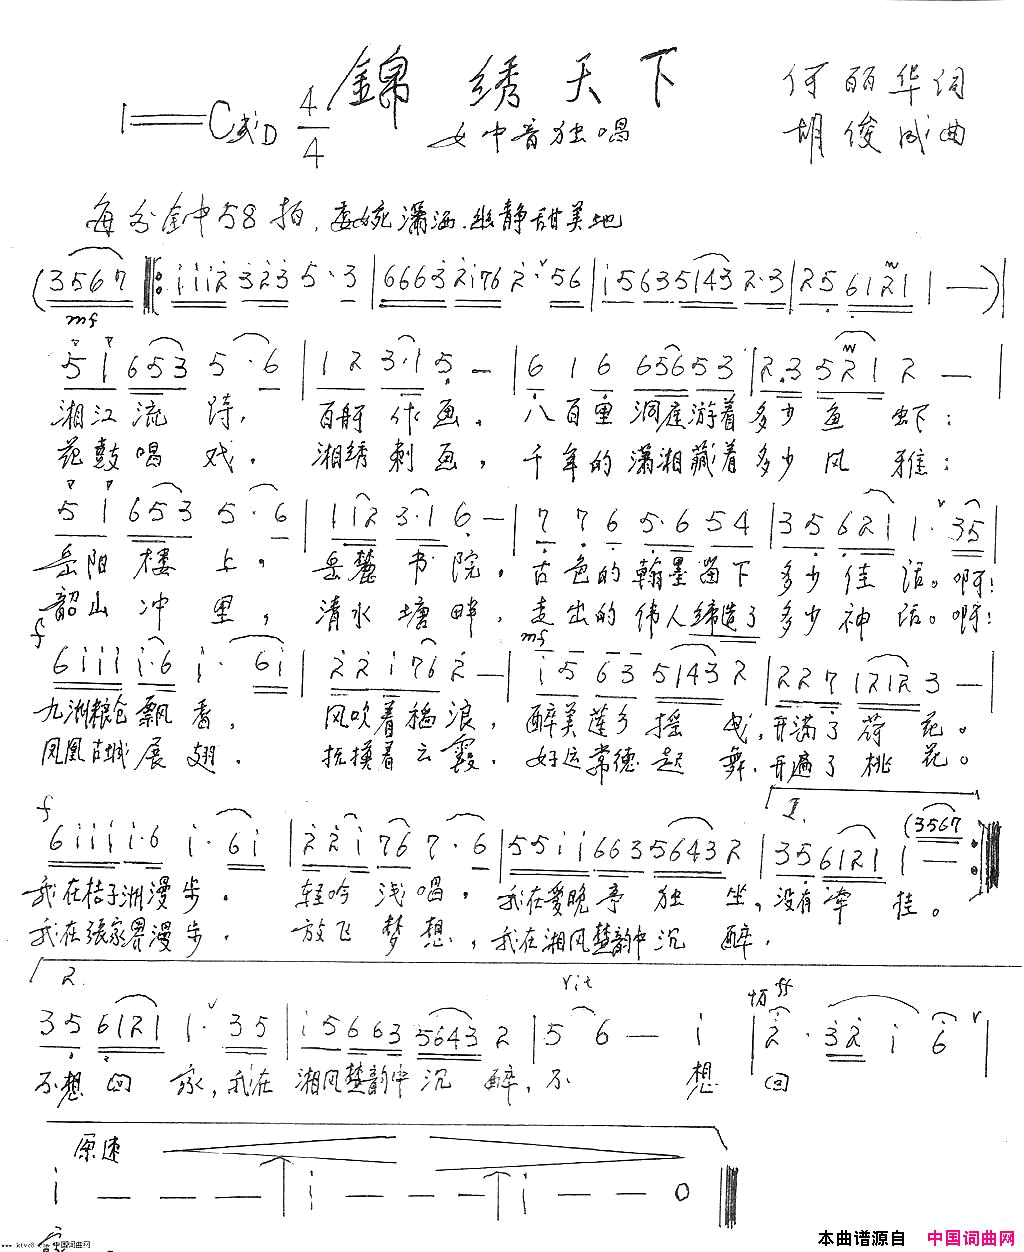 錦 绣 天 下
何丽华词
1=C或D 4/4
女中音独唱
胡俊成曲
每分金中58拍，委婉潇洒.幽静甜美地
(3567 ‖: 1112 323 5·3 | 6663 2176 2·ˇ56 | 1563 5143 2·3 | 25 6121 1 — )|
mf
51 653 5·6 | 12 3·1 5 — | 6 1 6 656 53 | 2.3 5 21 2 — |
湘江流 踌， 百舸 作画， 八百里 洞庭游着多少 鱼 虾：
花鼓唱 戏， 湘绣 刺画， 千年的 潇湘藏着多少 风 雅：
51 653 5·6 | 112 3·1 6 — | 7 7 6 5·6 54 | 35 621 1·ˇ35 |
岳阳楼 上， 岳麓 书院， 古色的 翰墨留下 多少 佳 话。啊！
韶山冲 里， 清水 塘畔， 走出的 伟人缔造了 多少 神 话。啊！
f
mf
6111 1·6 1· 61 | 22 1 76 2 — | 15 63 5143 2 | 227 1212 3 — |
九洲粮仓飘 香， 风吹着稻浪， 醉美莲乡 摇 曳，开满了 荷 花。
凤凰古城展 翅， 抚摸着云霞， 好运常德 起 舞，开遍了 桃 花。
f
I.
6111 1·6 1·61 | 221 76 7·6 | 5511 663 5643 2 | 35 6121 1 — (3567 :‖
我在桔子洲漫步， 轻吟 浅唱， 我在爱晚亭 独 坐，没有 牵 挂。
我在張家界漫步， 放飞 梦想， 我在湘风楚韵中沉 醉，
2.
rit
ff
35 6121 1·ˇ35 | 15 663 5643 2 | 5 6 — 1 | 2· 32 1 6ˇ |
不想 回 家，我在 湘风楚韵中 沉 醉，不 想 回
原速
1 — — — | 1 — — — | 1 — — 0 ‖
家
www.ktvc8.com 中国词曲网
本曲谱源自 中国词曲网